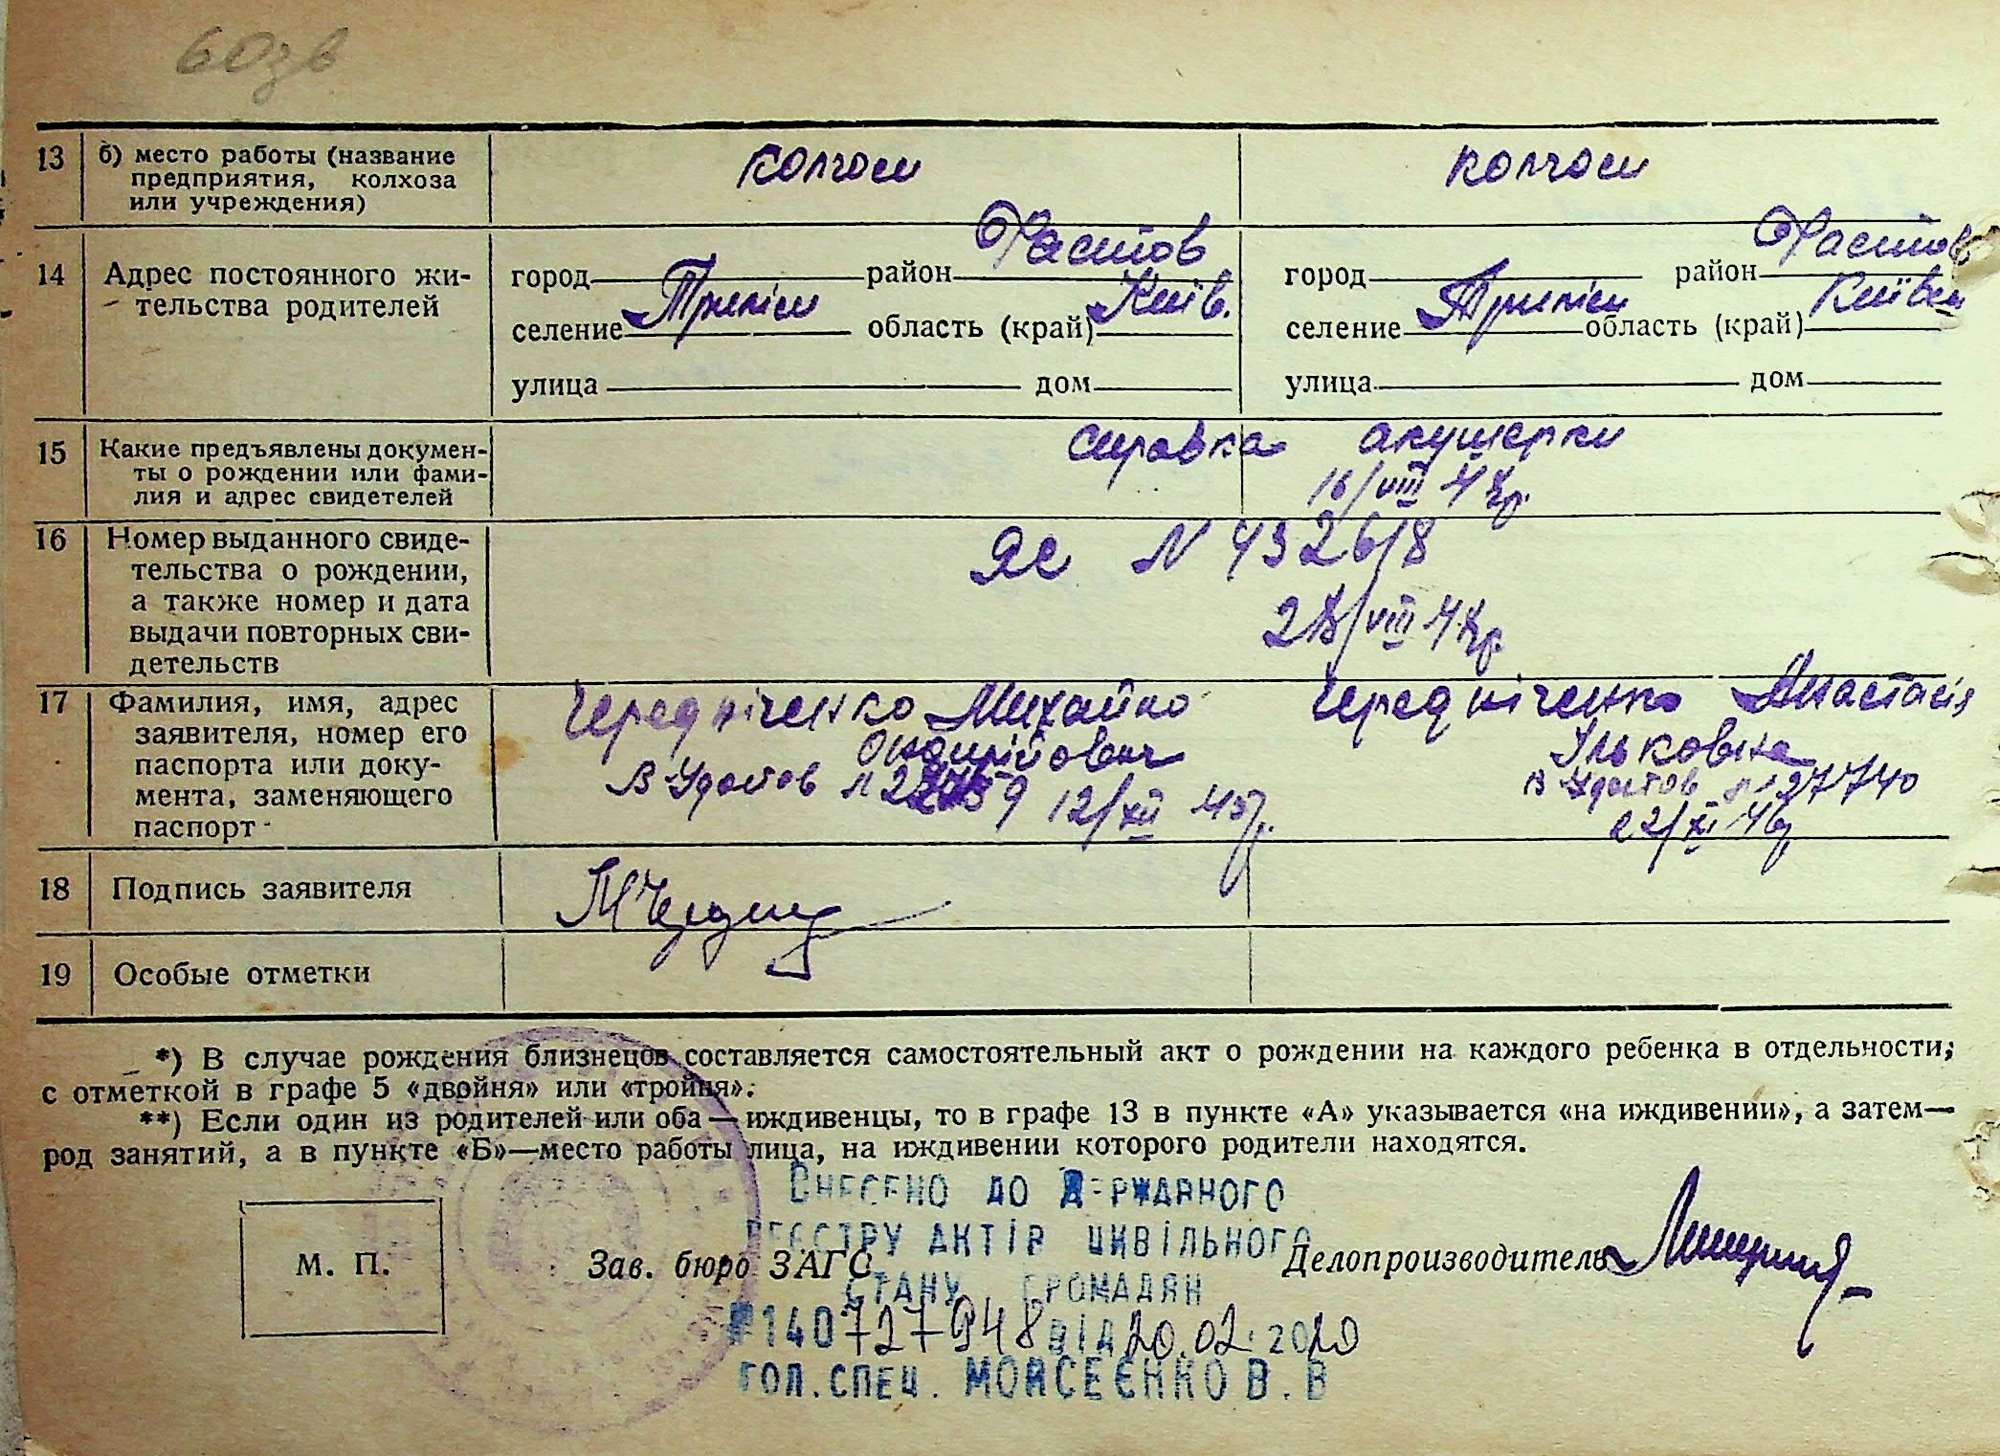 60зв
13 б) место работы (название
предприятия, колхоза
или учреждения)
колгосп колгосп
14 Адрес постоянного жи-
тельства родителей
город район Фастов город район Фастов
селение Трилiси область (край) Київ. селение Трилiси область (край) Київсь
улица дом улица дом
15 Какие предъявлены докумен-
ты о рождении или фами-
лия и адрес свидетелей
справка акушерки
16/VIII 47р.
16 Номер выданного свиде-
тельства о рождении,
а также номер и дата
выдачи повторных сви-
детельств
ЯС N 432618
/VIII 47р.
17 Фамилия, имя, адрес
заявителя, номер его
паспорта или доку-
мента, заменяющего
паспорт
Чередніченко Михайло Чередніченко Анастасія
Ульковна
В Удостов N В Удостов N 127740
12/XII 45р. 22/XI 46р
18 Подпись заявителя
19 Особые отметки
*) В случае рождения близнецов составляется самостоятельный акт о рождении на каждого ребенка в отдельности,
с отметкой в графе 5 «двойня» или «тройня».
**) Если один из родителей или оба—иждивенцы, то в графе 13 в пункте «А» указывается «на иждивении», а затем—
род занятий, а в пункте «Б»—место работы лица, на иждивении которого родители находятся.
ВНЕСЕНО ДО ДЕРЖАВНОГО
РЕЄСТРУ АКТІВ ЦИВІЛЬНОГО
М. П. Зав. бюро ЗАГС Делопроизводитель
СТАНУ ГРОМАДЯН
№140727948 ВІД 20.02.2020
ГОЛ.СПЕЦ. МОИСЕЄНКО В.В